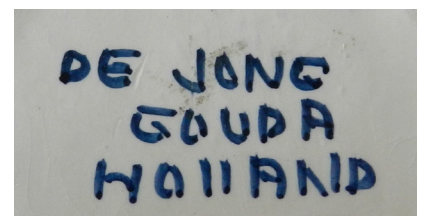 DE JONG
GOUDA
HOLLAND